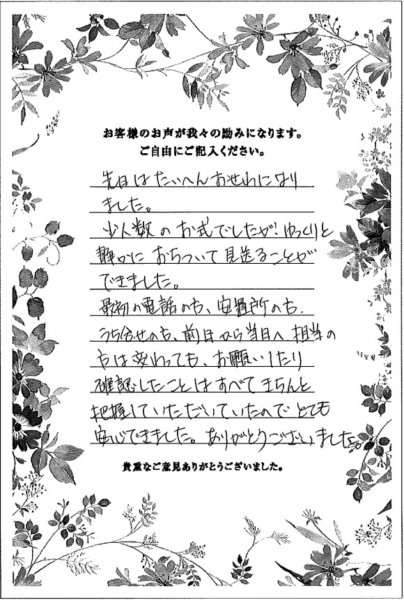 お客様のお声が我々の励みになります。
ご自由にご記入ください。
先日はたいへんおせわになり
ました。
少人数のお式でしたが、ゆっくりと
静かにおちついて見送ることが
できました。
最初の電話の方、安置所の方、
うち合せの方、前日から当日へ担当の
方は変わっても、お願いしたり
確認したことはすべてきちんと
把握していただいていたのでとても
安心できました。ありがとうございました。
貴重なご意見ありがとうございました。